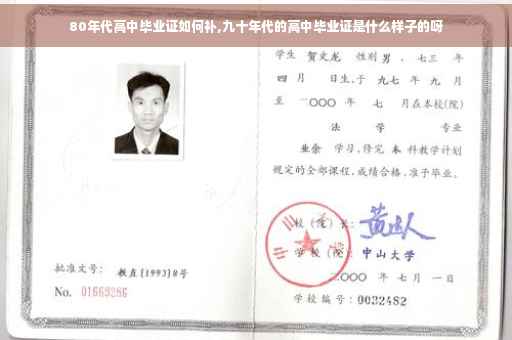 80年代高中毕业证如何补,九十年代的高中毕业证是什么样子的呀
学生 贺文龙 性别 男 、七三 年
四 月 日生,于 九七 年 九 月
至 二〇〇〇 年 七 月在本校(院)
法 学 专业
业余 学习,修完 本 科教学计划
规定的全部课程,成绩合格,准予毕业。
校 (院) 长:
学 校 (院): 中山大学
二〇〇〇 年 七 月 一 日
学校编号: 0032482
批准文号: 教直[1993]8号
No. 01669286